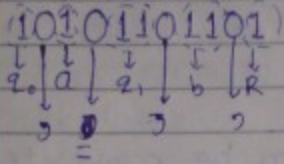 (1010110110 1)
↓ ↓ ↓ ↓ ↓
q₀ a q₁ b R
, 0 , ,